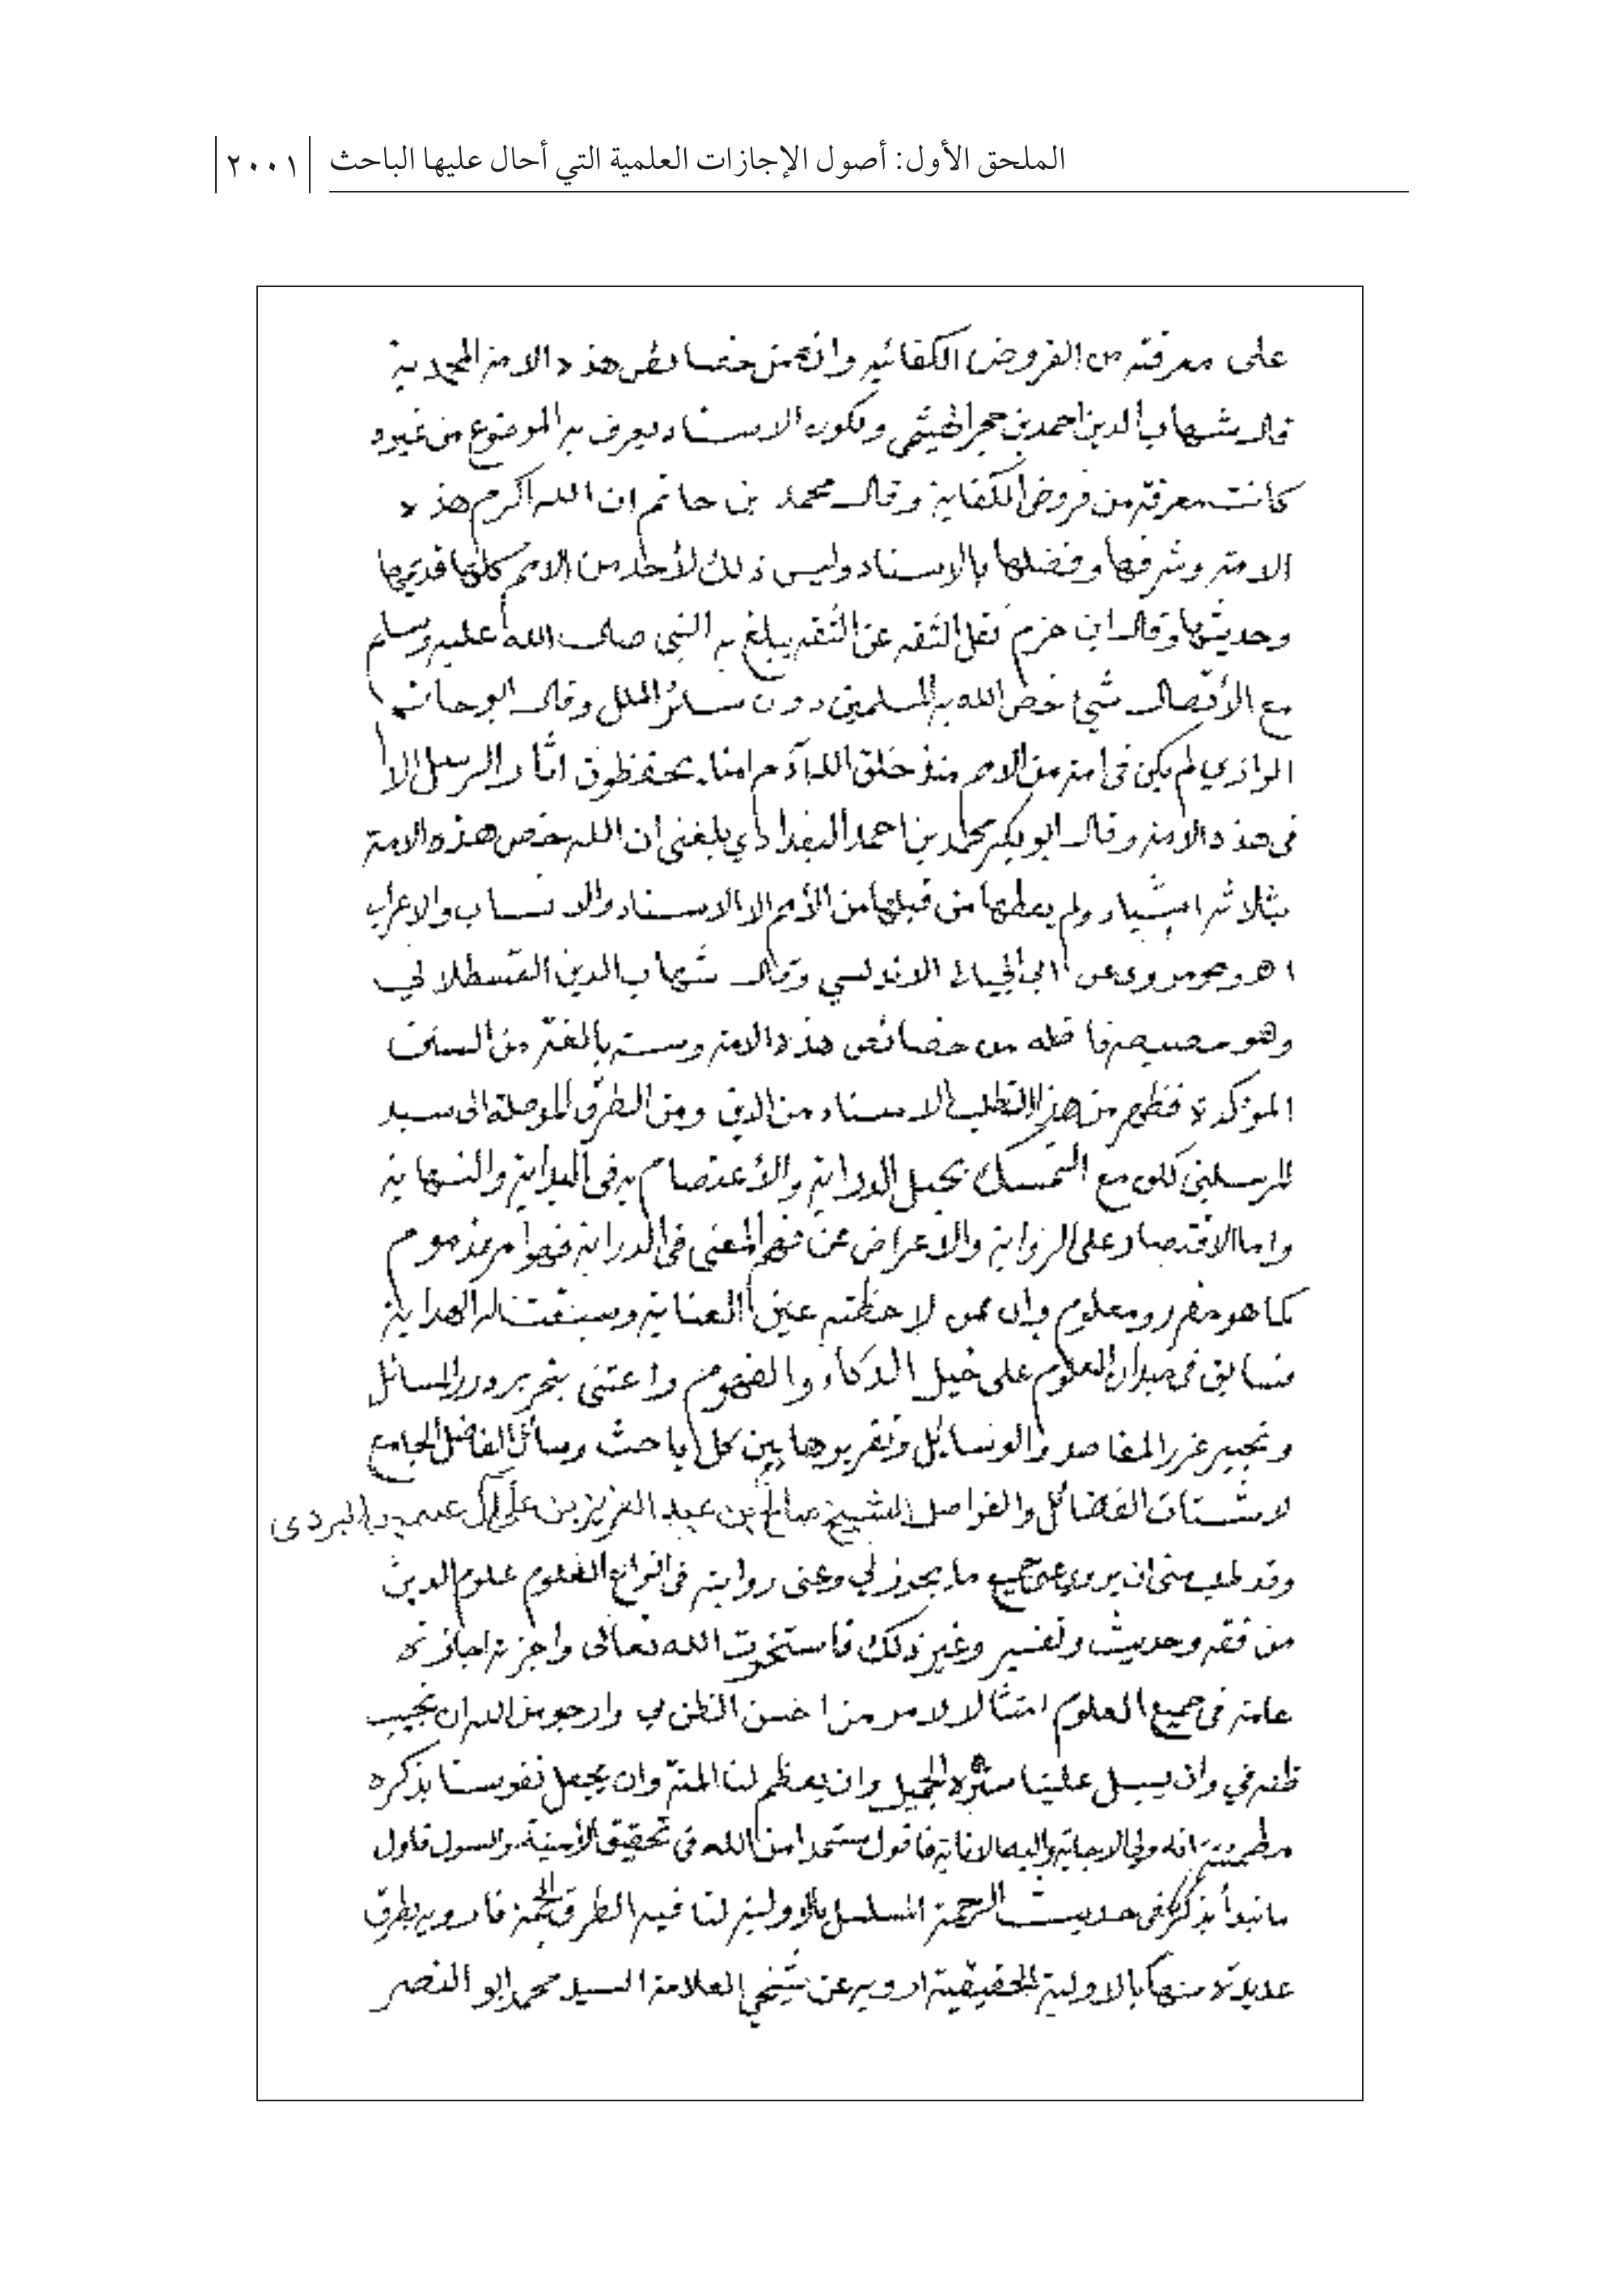 الملحق الأول: أصول الإجازات العلمية التي أحال عليها الباحث ٢٠٠١
على معرفته من الفروض الكفائيه وانه من خصائص هذه الامة المحمدية
قال شهاب الدين احمد بن حجر الهيتمي ولكون الاسناد يعرف به الموضوع من غيره
كانت معرفته من فروض الكفاية وقال محمد بن حاتم ان الله اكرم هذه
الامة وشرفها وفضلها بالاسناد وليس ذلك لأحد من الامم كلها قديمها
وحديثها وقال ابن حزم نقل الثقه عن الثقه يبلغ به النبي صلى الله عليه وسلم
مع الأتصال شيئ خص الله به المسلمين دون سائر الملل وقال ابو حاتم
الرازي لم يكن في امة من الامم منذ خلق الله آدم امناء يحفظون اثار الرسل الا
في هذه الامة وقال ابو بكر محمد بن احمد البغدادي بلغني ان الله خص هذه الامة
بثلاثة اشياء ولم يعطها من قبلها من الأمم الاسناد والانساب والاعراب
اهـ وهو مروي عن ابي الاندلسي وقال شهاب الدين القسطلاني
وهو فاضلة من خصائص هذه الامة وسنة بالغة من السنن
المؤكدة فظهر من هذا ان تطلب الاسناد من الدين ومن الطرق الموصلة الى سيد
المرسلين لكن مع التمسك بحبل الدراية والأعتصام به في البداية والنهاية
واما الاقتصار على الرواية والاعراض عن فهم المعنى في الدراية فهو امر مذموم
كما هو مقرر ومعلوم وان ممن لاحظته عين العناية وسبقت له الهداية
فسابق في ميدان العلوم على خيل الذكاء والفهوم واعتنى بتحرير درر المسائل
وتحبير غرر المقاصد والوسائل وتقريرها بين كل باحث وسائل الفاضل الجامع
لاشتات الفضائل والفواضل الشيخ صالح بن عبد العزيز بن علي آل البردي
وقد طلب مني ان يروي عني جميع ما يجوز لي وعني رواية في انواع العلوم علوم الدين
من فقه وحديث وتفسير وغير ذلك فاستخرت الله تعالى واجزته اجازة
عامة في جميع العلوم امتثالا لامر من احسن الظن بي وارجو من الله ان يجيب
ظنه في وان يسبل علينا ستره الجميل وان يعظم لنا المنة وان يجعل نفوسنا بذكره
مطمئنة انه ولي الاجابة واليه الانابة فاقول مستمدا من الله في تحقيق الأمنية والسول فاول
ما نبدأ بذكره في حديث الرحمة المسلسل بالاولية لنا فيه الطرق الجمة فارويه بطرق
عديدة منها بالاولية الحقيقية ارويه عن شيخي العلامة السيد محمد ابو النصر